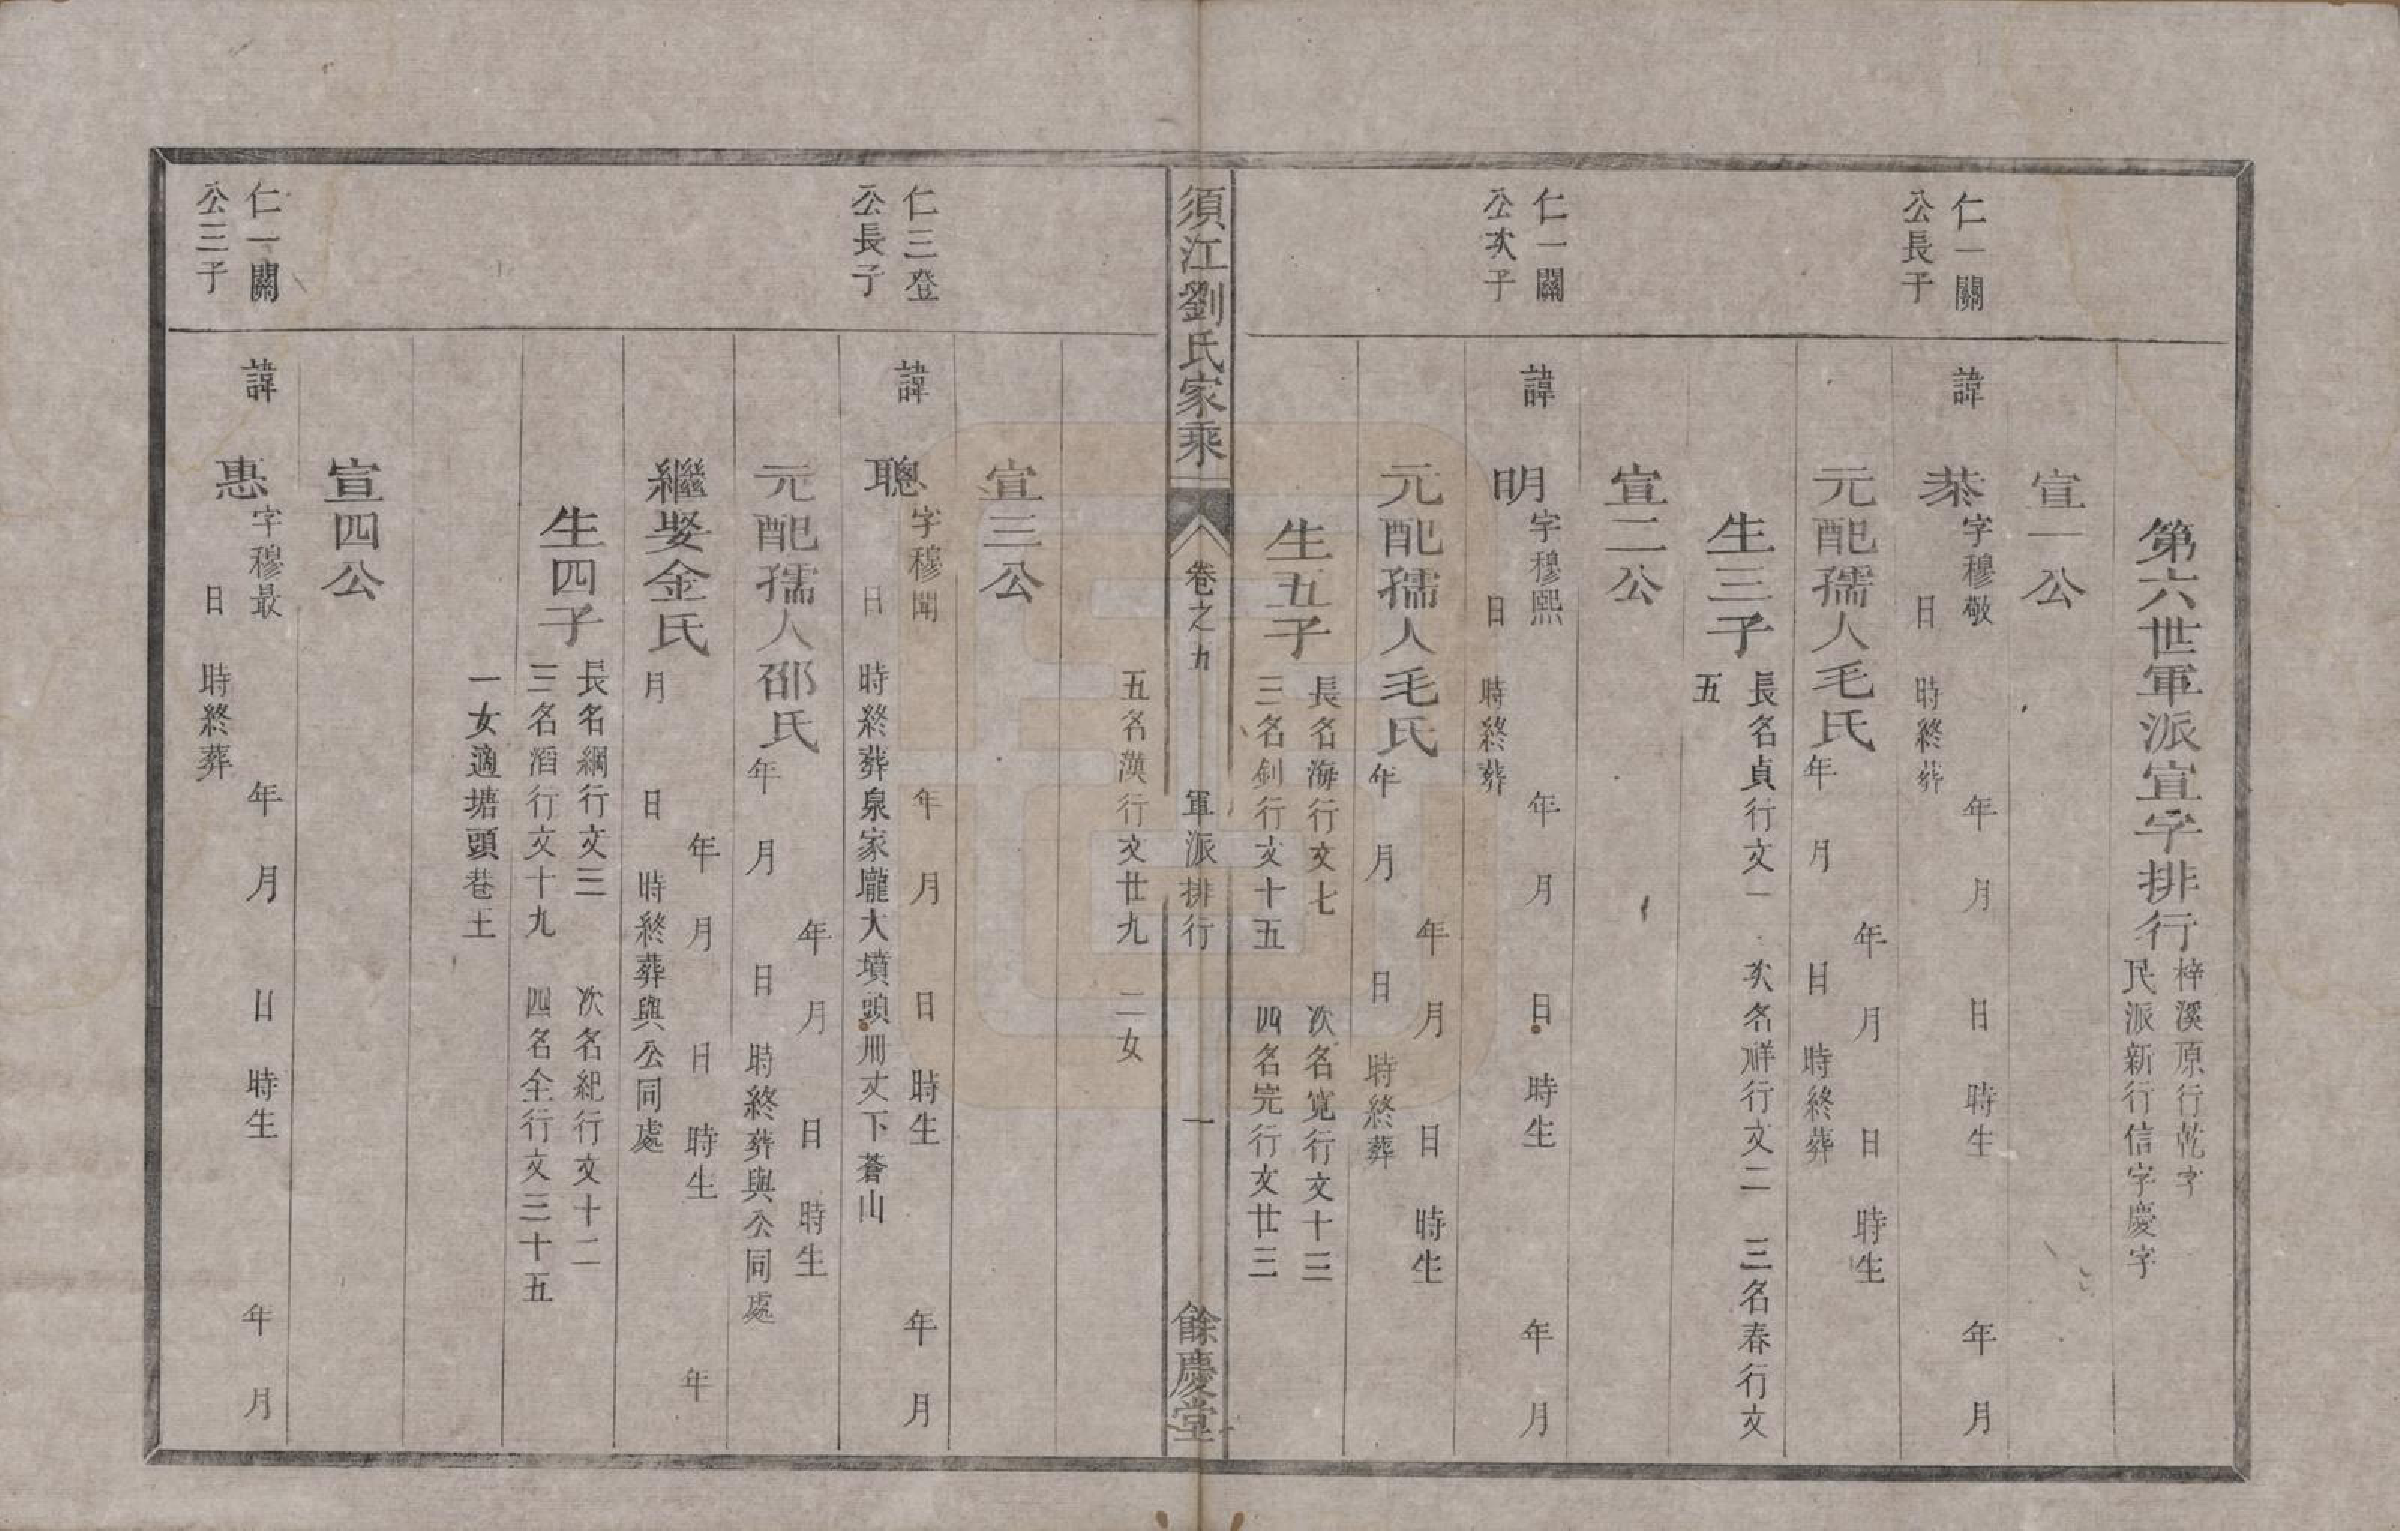 第六世軍派宣字排行
梓溪原行乾字
民派新行信字慶字
宣一公
仁一關
公長子
諱恭
字穆敬 年 月 日 時生 年 月
日 時終葬
元配孺人毛氏
年 月 日 時生
年 月 日 時終葬
生三子
長名貞行文一 次名祥行文二 三名春行文
五
宣二公
仁一關
公次子
諱明
字穆熙 年 月 日 時生 年 月
日 時終葬
元配孺人毛氏
年 月 日 時生
年 月 日 時終葬
生五子
長名海行文七 次名寬行文十三
三名釗行文十五 四名完行文廿三
須江劉氏家乘 卷之九 軍派排行 一 餘慶堂
五名漢行文廿九 二女
宣三公
仁三登
公長子
諱聰
字穆聞 年 月 日 時生 年 月
日 時終葬泉家壠大墳頭卌丈下蒼山
元配孺人邵氏
年 月 日 時生
年 月 日 時終葬與公同處
繼娶金氏
年 月 日 時生 年
月 日 時終葬與公同處
生四子
長名綱行文三 次名紀行文十二
三名滔行文十九 四名全行文三十五
一女適塘頭巷王
宣四公
仁一關
公三子
諱惠
字穆最 年 月 日 時生 年 月
日 時終葬